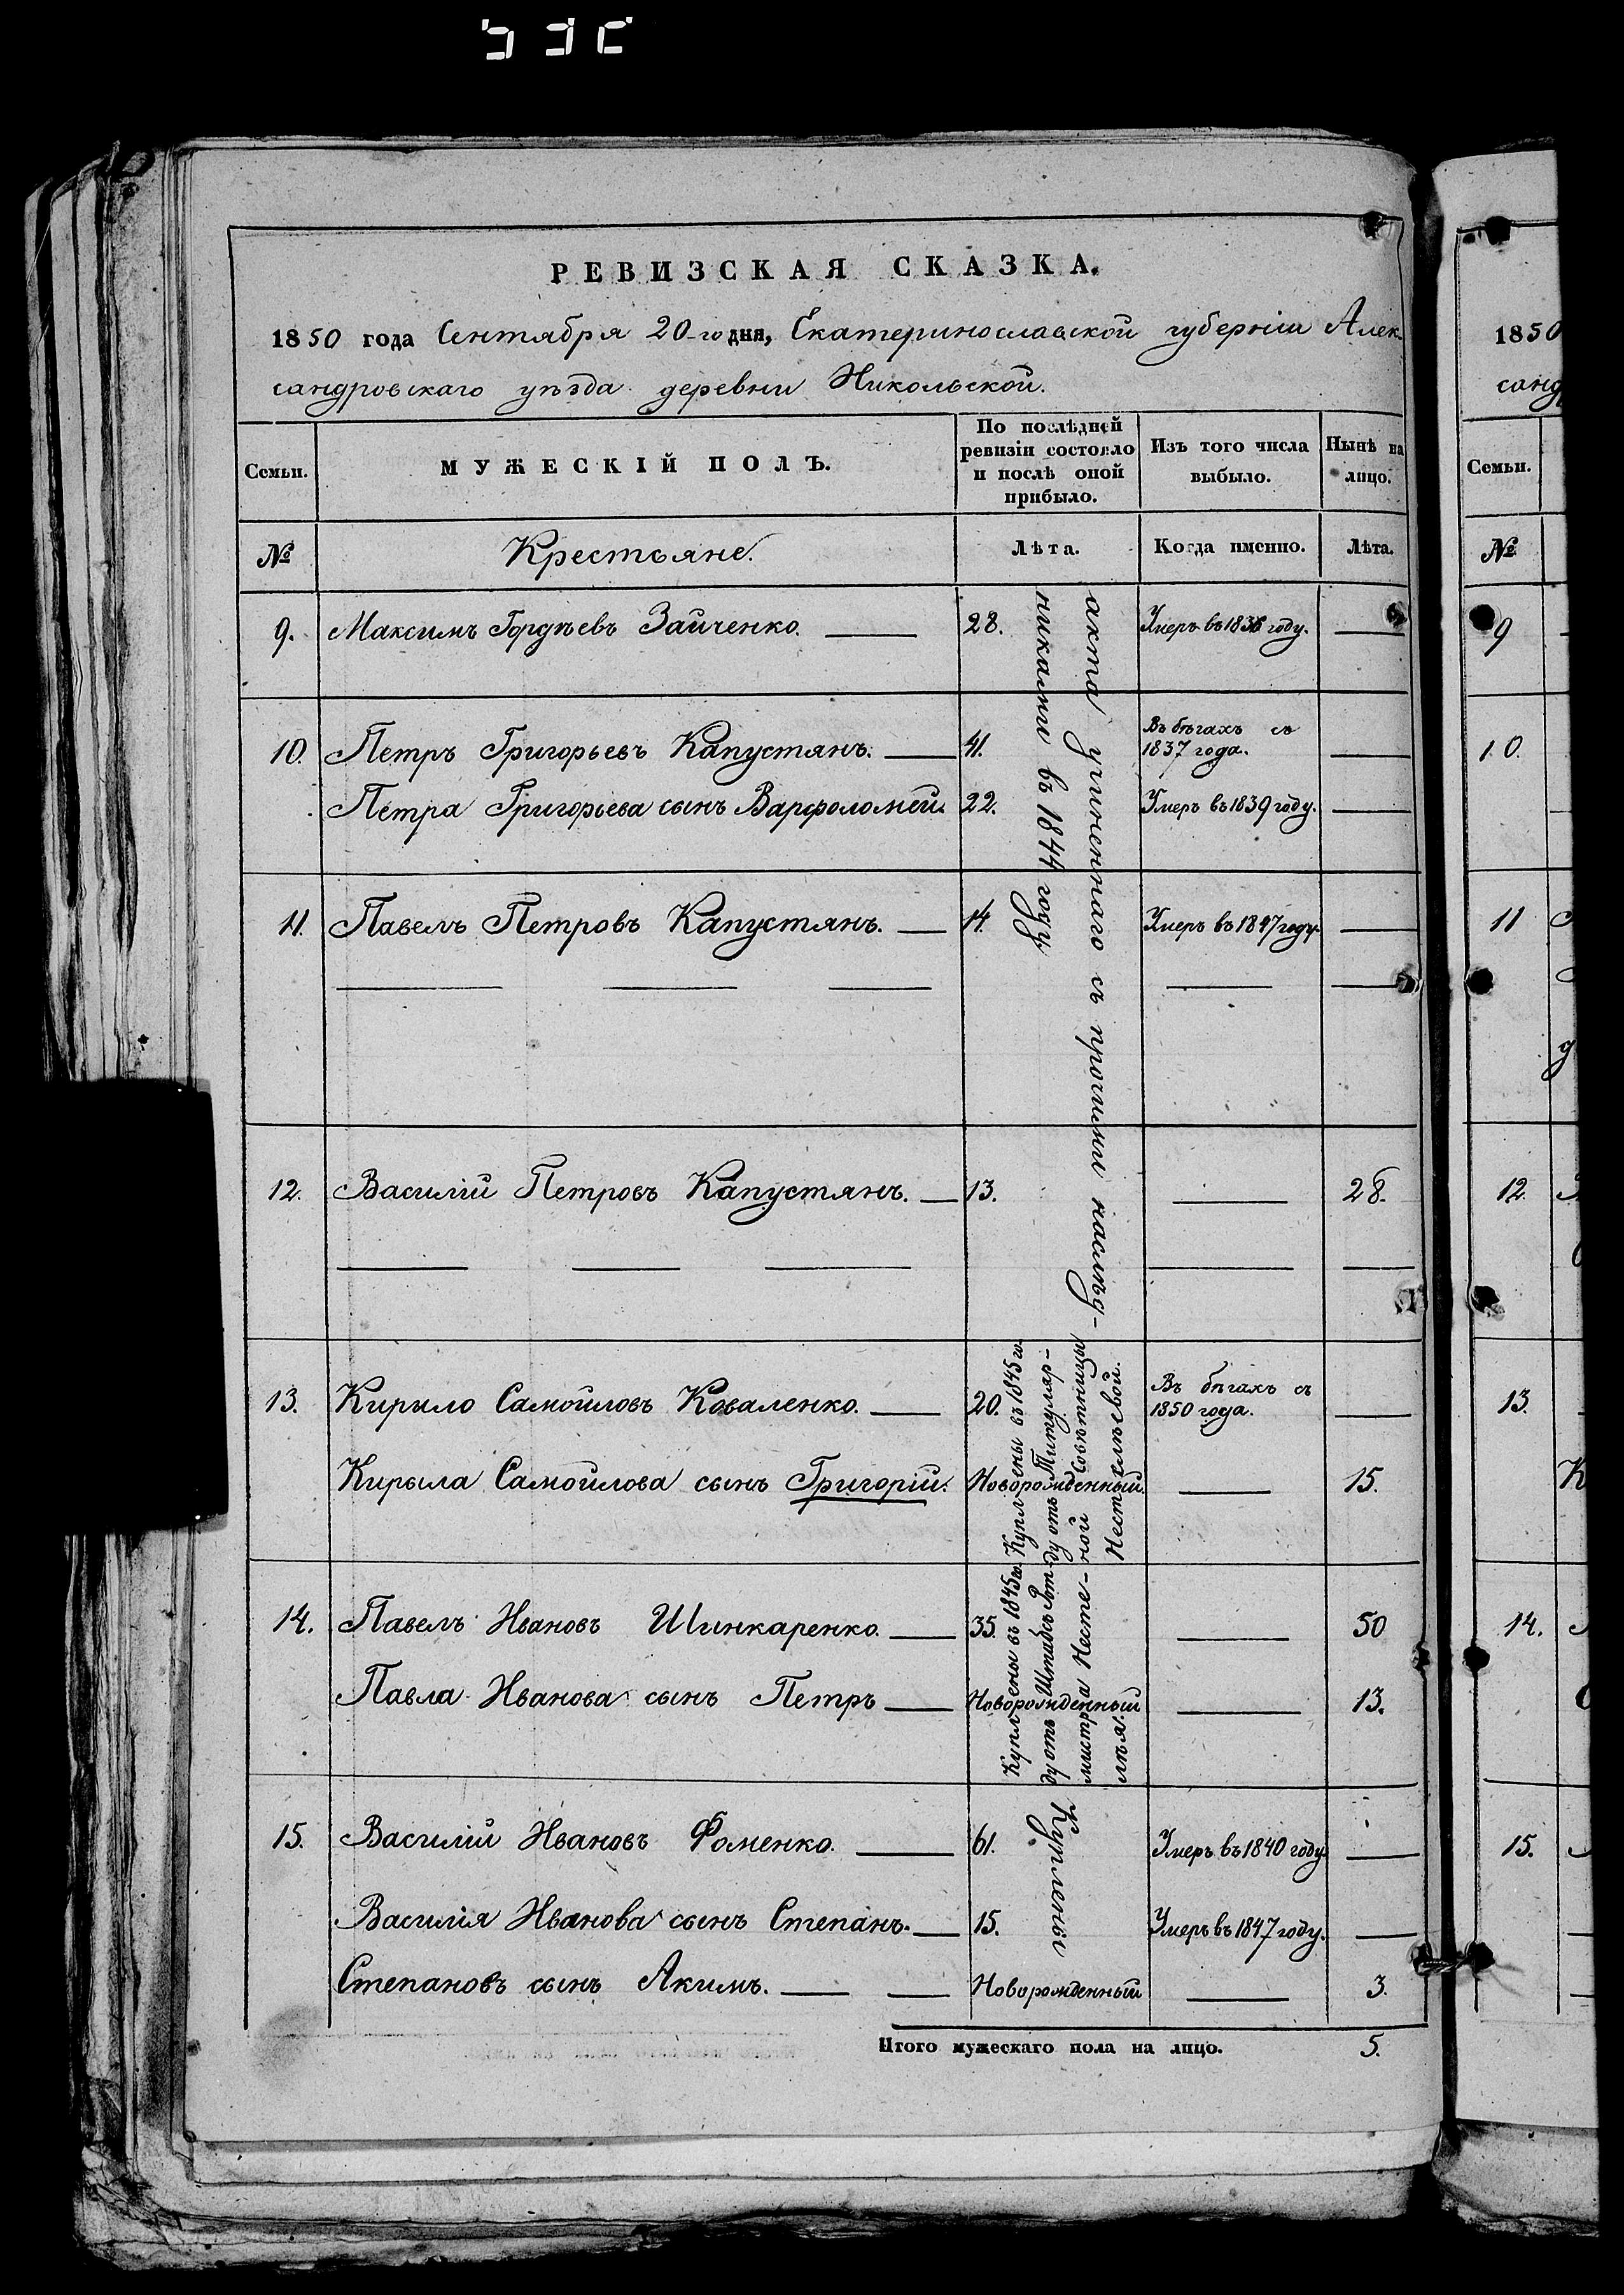 РЕВИЗСКАЯ СКАЗКА.
1850 года Сентября 20-го дня, Екатеринославской губерніи Алек-
сандровскаго уѣзда деревни Никольской.
Семьи. МУЖЕСКІЙ ПОЛЪ. По послѣдней ревизіи состояло и послѣ оной прибыло. Изъ того числа выбыло. Нынѣ на лицо.
№ Крестьяне. Лѣта. Когда именно. Лѣта.
9. Максимъ Гордѣевъ Зайченко. 28. Умеръ въ 1836 году.
10. Петръ Григорьевъ Капустянъ. 41. Въ бѣгахъ съ 1837 года.
Петра Григорьева сынъ Варфоломей. 22. Умеръ въ 1839 году.
11. Павелъ Петровъ Капустянъ. 14. Умеръ въ 1847 году.
12. Василій Петровъ Капустянъ. 13. 28.
акта учиненнаго съ прочими наслѣд-
никами въ 1844 году
13. Кирило Самойловъ Коваленко. 20. Въ бѣгахъ съ 1850 года.
Кирыла Самойлова сынъ Григорій. Новорожденный. 15.
Куплены въ 1845 го-
ду отъ Титуляр-
ной Совѣтницы
Нестелѣевой.
14. Павелъ Ивановъ Шинкаренко. 35. 50
Павла Иванова сынъ Петръ Новорожденный 13.
Куплены въ 1845 го-
ду отъ Штабсъ Рот-
мистра Несте-
лѣя.
15. Василій Ивановъ Фоменко. 61. Умеръ въ 1840 году.
Василія Иванова сынъ Степанъ. 15. Умеръ въ 1847 году.
Степановъ сынъ Акимъ. Новорожденный 3.
Куплены
Итого мужескаго пола на лицо. 5.
1850
санд
Семьи.
№
9
10.
11
12.
13.
14.
15.